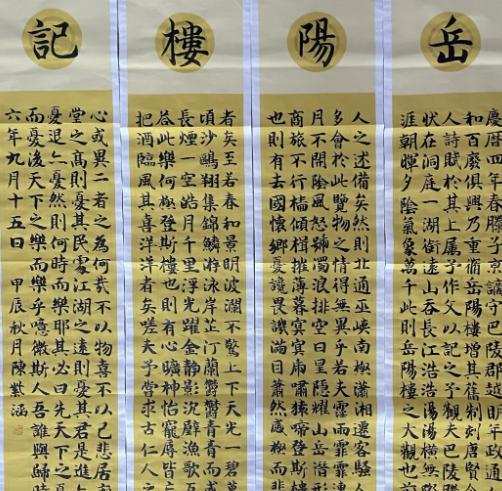 岳
慶曆四年春滕子京謫守巴陵郡越明年政通人
和百廢俱興乃重脩岳陽樓增其舊制刻唐賢今
人詩賦於其上屬予作文以記之予觀夫巴陵勝
狀在洞庭一湖銜遠山吞長江浩浩湯湯橫無際
涯朝暉夕陰氣象萬千此則岳陽樓之大觀也
陽
人之述備矣然則北通巫峽南極瀟湘遷客騷人
多會於此覽物之情得無異乎若夫霪雨霏霏連
月不開陰風怒號濁浪排空日星隱耀山岳潛形
商旅不行檣傾楫摧薄暮冥冥虎嘯猿啼登斯樓
也則有去國懷鄉憂讒畏譏滿目蕭然感極而悲
樓
者矣至若春和景明波瀾不驚上下天光一碧萬
頃沙鷗翔集錦鱗游泳岸芷汀蘭鬱鬱青青而或
長煙一空皓月千里浮光躍金靜影沉璧漁歌互
答此樂何極登斯樓也則有心曠神怡寵辱皆忘
把酒臨風其喜洋洋者矣嗟夫予嘗求古仁人之
記
心或異二者之為何哉不以物喜不以己悲居廟
堂之高則憂其民處江湖之遠則憂其君是進亦
憂退亦憂然則何時而樂耶其必曰先天下之憂
而憂後天下之樂而樂乎噫微斯人吾誰與歸時
六年九月十五日 甲辰秋月陳紫涵